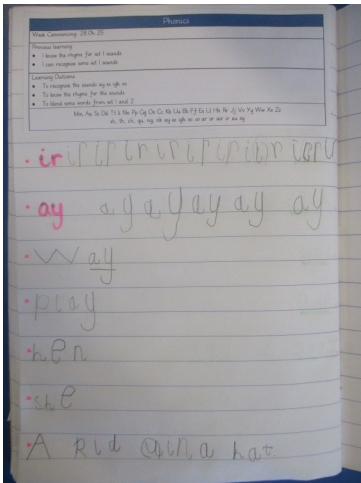 Phonics
Week Commencing: 28.04.25
Previous learning
I know the rhyme for set 1 sounds
I can recognise some set 1 sounds
Learning Outcome
To recognise the sounds ay ee igh ow
To know the rhyme for the sounds
To blend some words from set 1 and 2
Mm Aa Ss Dd Tt Ii Nn Pp Gg Oo Cc Kk Uu Bb Ff Ee Ll Hh Rr Jj Vv Yy Ww Xx Zz
sh, th, ch, qu, ng, nk ay ee igh ow oo ar or air ir ou oy
ir ir ir ir ir ir ir ir ir
ay ay ay ay ay ay
way
play
hen
she
A hat